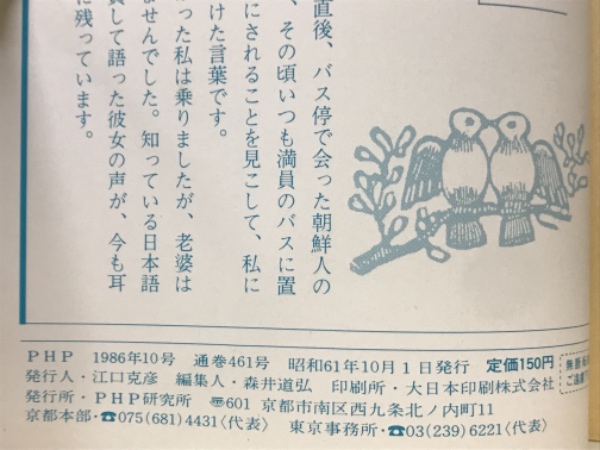 直後、バス停で会った朝鮮人の
、その頃いつも満員のバスに置
にされることを見こして、私に
けた言葉です。
かった私は乗りましたが、老婆は
ませんでした。知っている日本語
員して語った彼女の声が、今も耳
に残っています。
PHP 1986年10号 通巻461号 昭和61年10月1日発行 定価150円
発行人・江口克彦 編集人・森井道弘 印刷所・大日本印刷株式会社
発行所・PHP研究所 〠601 京都市南区西九条北ノ内町11
京都本部・☎075(681)4431〈代表〉 東京事務所・☎03(239)6221〈代表〉